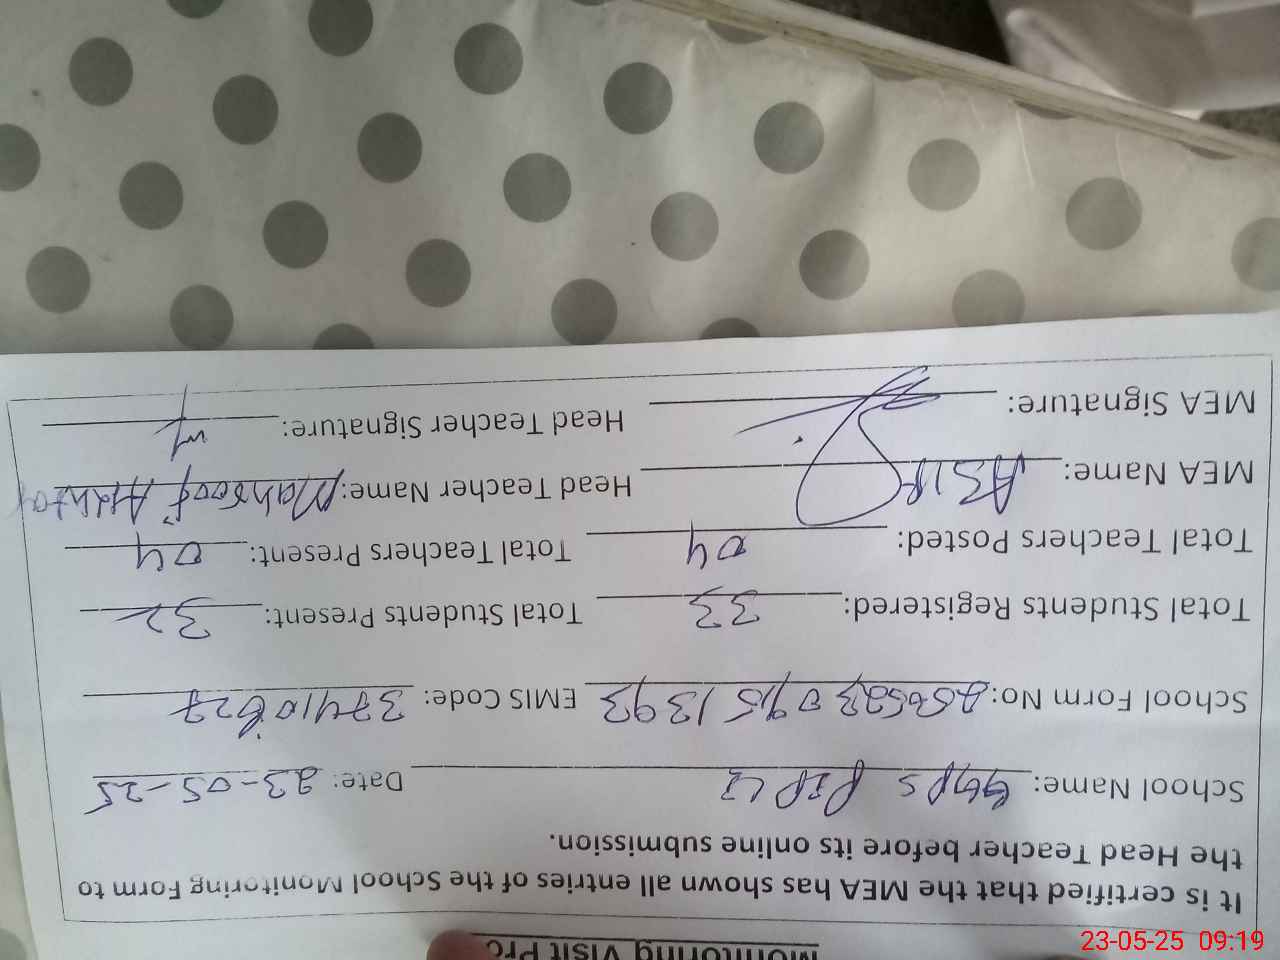 Monitoring Visit Pro
It is certified that the MEA has shown all entries of the School Monitoring Form to
the Head Teacher before its online submission.
School Name: GGPS Date: 23-05-25
School Form No: EMIS Code: 37410627
Total Students Registered: 33 Total Students Present: 32
Total Teachers Posted: 04 Total Teachers Present: 04
MEA Name: ASIF Head Teacher Name:
MEA Signature: Head Teacher Signature:
23-05-25 09:19